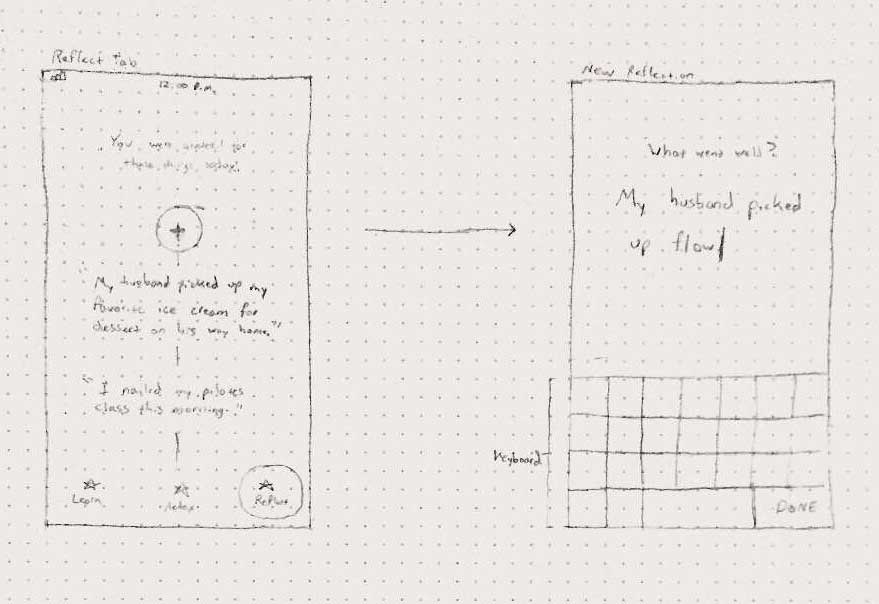 Reflect Tab
12:00 P.M.
You were grateful for
these things today:
+
"My husband picked up my
favorite ice cream for
dessert on his way home."
"I nailed my pilates
class this morning."
Learn
Relax
Reflect
New Reflection
What went well?
My husband picked
up flow
Keyboard
DONE